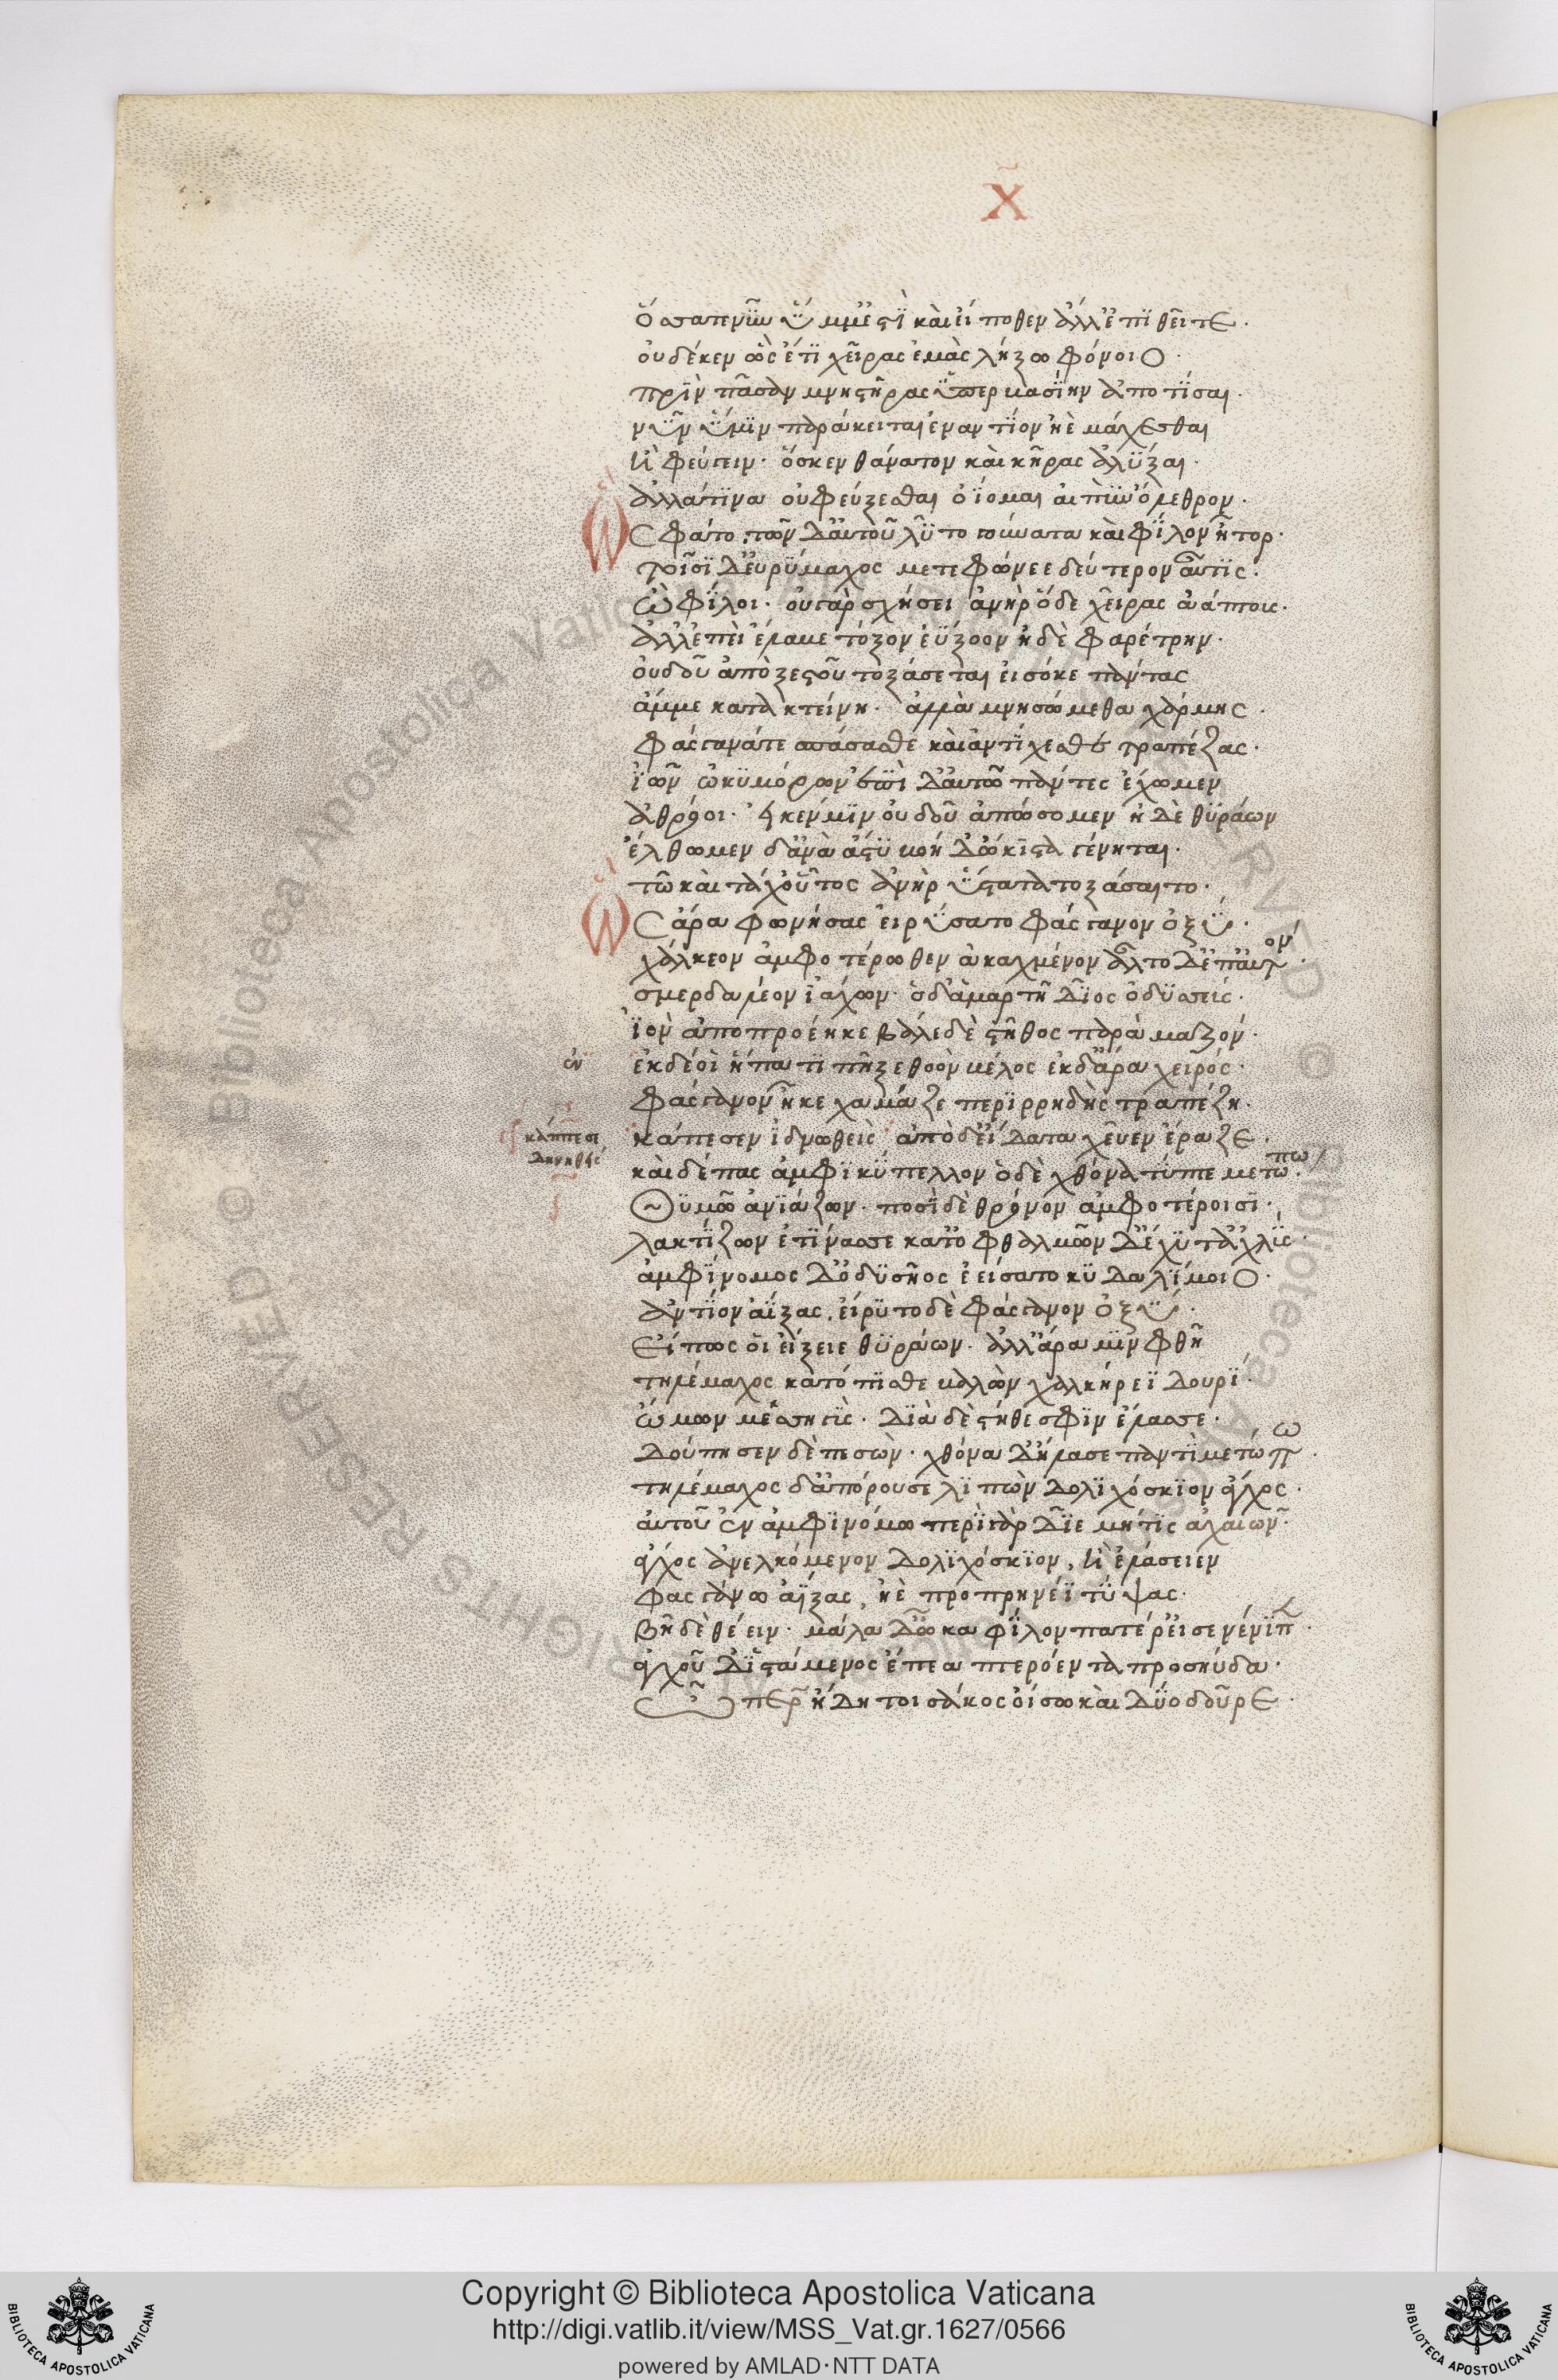 Χ
ὅσσα τε νῦν ὔμμ' ἐστὶ καὶ εἴ ποθεν ἄλλ' ἐπιθεῖτε·
οὐδέ κεν ὣς ἔτι χεῖρας ἐμὰς λήξω φόνοιο·
πρὶν πᾶσαν μνηστῆρας ὑπερβασίην ἀποτῖσαι·
νῦν ὑμῖν παράκειται ἐναντίον ἠὲ μάχεσθαι
ἢ φεύγειν· ὅς κεν θάνατον καὶ κῆρας ἀλύξαι·
ἀλλά τιν' οὐ φεύξεσθαι ὀΐομαι αἰπὺν ὄλεθρον·
Ὣς φάτο· τῶν δ' αὐτοῦ λύτο γούνατα καὶ φίλον ἦτορ·
τοῖσι δ' Εὐρύμαχος μετεφώνεε δεύτερον αὖτις·
Ὦ φίλοι· οὐ γὰρ σχήσει ἀνὴρ ὅδε χεῖρας ἀάπτους·
ἀλλ' ἐπεὶ ἔλαβε τόξον ἐΰξοον ἠδὲ φαρέτρην·
οὐδοῦ ἄπο ξεστοῦ τοξάσεται εἰσόκε πάντας
ἄμμε κατακτείνῃ· ἀλλὰ μνησώμεθα χάρμης·
φάσγανά τε σπάσασθε καὶ ἀντίχεσθε τραπέζας·
ἰῶν ὠκυμόρων· ἐπὶ δ' αὐτῷ πάντες ἔχωμεν
ἀθρόοι· εἴ κέν μιν οὐδοῦ ἀπώσομεν ἠδὲ θυράων
ἔλθωμεν δ' ἀνὰ ἄστυ βοὴ δ' ὤκιστα γένηται·
τῷ κε τάχ' οὗτος ἀνὴρ ὕστατα τοξάσαιτο·
Ὣς ἄρα φωνήσας εἰρύσατο φάσγανον ὀξύ·
χάλκεον ἀμφοτέρωθεν ἀκαχμένον ἆλτο δ' ἐπ' αὐτόν·
σμερδαλέον ἰάχων· ὁ δ' ἁμαρτῆ δῖος ὀδυσσεύς·
ἰὸν ἀποπροέηκε βάλε δὲ στῆθος παρὰ μαζόν·
ἐν
ἐκ δέ οἱ ἥπατι πῆξε θοὸν βέλος ἐκ δ' ἄρα χειρός·
φάσγανον ἧκε χαμᾶζε περιρρηδὴς τραπέζῃ·
κάππεσε
δινηθείς
κάπεσεν ἰδνωθεὶς ἀπὸ δ' εἴδατα χεῦεν ἔραζε·
καὶ δέπας ἀμφικύπελλον ὁ δὲ χθόνα τύπτε μετώπῳ·
Θυμῷ ἀνιάζων· ποσὶ δὲ θρόνον ἀμφοτέροισι·
λακτίζων ἐτίνασσε κατ' ὀφθαλμῶν δ' ἔχυτ' ἀχλύς·
ἀμφίνομος δ' ὀδυσῆος ἐείσατο κυδαλίμοιο·
ἀντίον ἀΐξας· εἴρυτο δὲ φάσγανον ὀξύ·
Εἴ πως οἱ εἴξειε θυράων· ἀλλ' ἄρα μιν φθῆ
τηλέμαχος κατόπισθε βαλὼν χαλκήρεϊ δουρί·
ὤμων μεσσηγύς· διὰ δὲ στήθεσφιν ἔλασσε·
δούπησεν δὲ πεσών· χθόνα δ' ἤλασε παντὶ μετώπῳ·
τηλέμαχος δ' ἀπόρουσε λιπὼν δολιχόσκιον ἔγχος·
αὐτοῦ ἐν ἀμφινόμῳ περὶ γὰρ δῖε μήτις ἀχαιῶν·
ἔγχος ἀνελκόμενον δολιχόσκιον, ἢ ἐλάσειεν
φασγάνῳ ἀΐξας, ἠὲ προπρηνέϊ τύψας·
βῆ δὲ θέειν· μάλα δ' ὦκα φίλον πατέρ' εἰσενένιπ
ἀγχοῦ δ' ἱστάμενος ἔπεα πτερόεντα προσηύδα·
Ὦ πάτερ ἤδη τοι σάκος οἴσω καὶ δύο δοῦρε·
Copyright © Biblioteca Apostolica Vaticana
http://digi.vatlib.it/view/MSS_Vat.gr.1627/0566
powered by AMLAD·NTT DATA
BIBLIOTECA APOSTOLICA VATICANA
BIBLIOTECA APOSTOLICA VATICANA